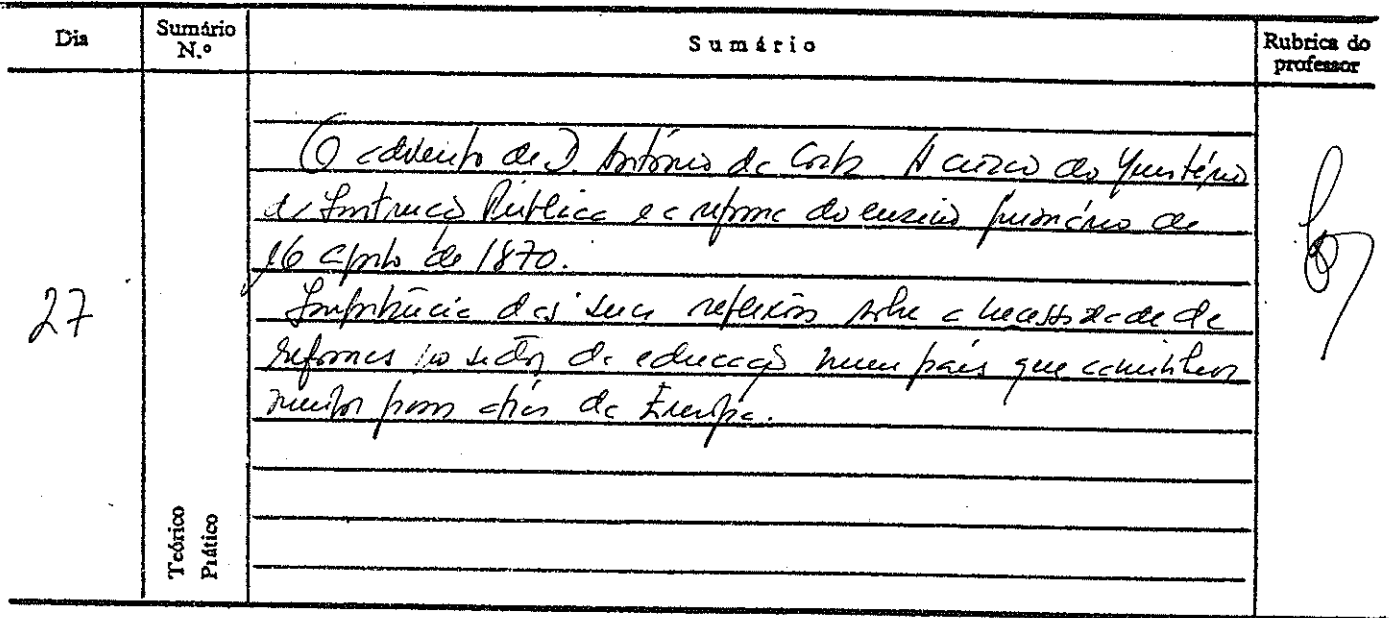 Dia
Sumário N.º
Sumário
Rubrica do professor
O advento de D. António da Costa. A criação do Ministério
de Instrução Pública e a reforma do ensino primário de
16 agosto de 1870.
27
Importância das suas reflexões sobre a necessidade de
reformas no sector da educação num país que caminhava
muitos passos atrás da Europa.
Teórico
Prático